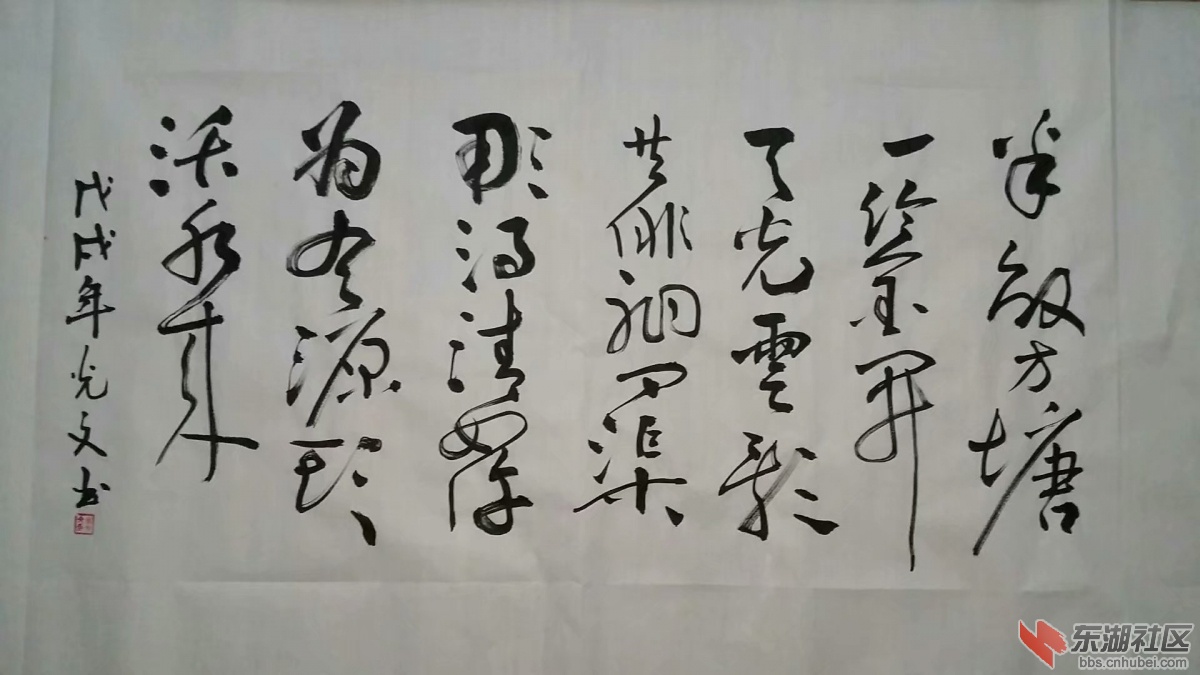 半畝方塘
一鑒開
天光雲影
共徘徊問渠
那得清如許
為有源頭
活水來
戊戌年光文书
东湖社区
bbs.cnhubei.com